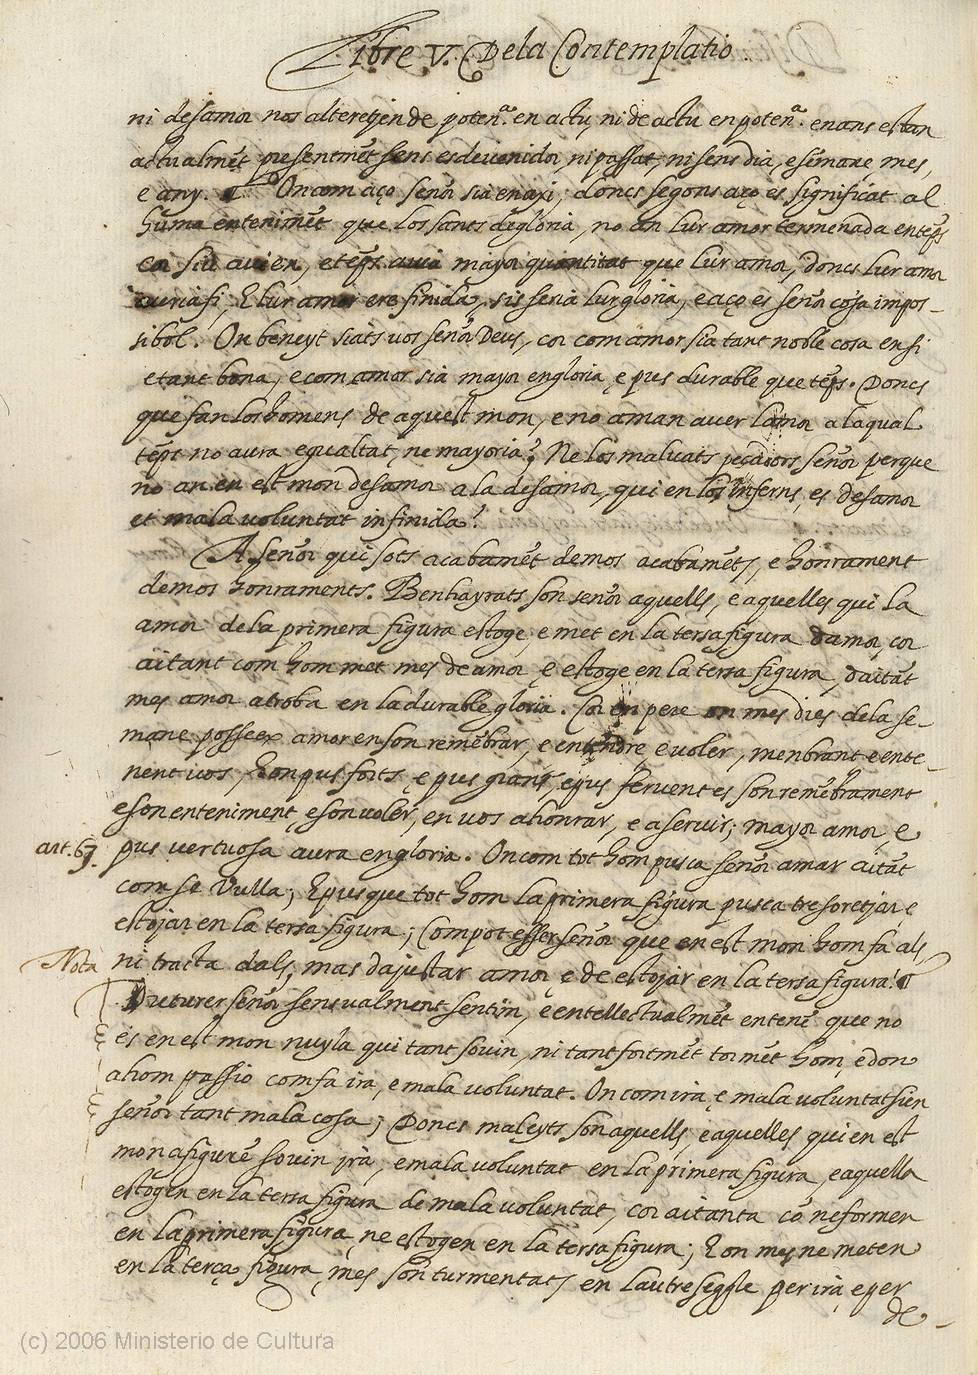 Libre V. De la Contemplatio
ni desamor nos alteretjen de poten.ª en actu, ni de actu en poten.ª enans estan
actualmēt presentmēt sens esdevenidor, ni passat, ni sens dia, e semāne, mes,
e any. ¶ On com aço señor sia enaxi; doncs segons aço es significat al
humā entenimēt que los sants de gloria, no an lur amor termenada en tēps
cor si u avien, e tēps avia mayor quantitat que lur amor, doncs lur amor
auria fi, E lur amor ere finida, sis seria lur gloria, e aço es señor cosa impos-
sibol. On beneyt siats vos señor Deus, cor com amor sia tant noble cosa en si
e tant bona, e com amor sia mayor en gloria e pus durable que tēps. Doncs
que fan los homens de aquest mon, e no aman aver lamor a la qual
tēps no aura egualtat, ne mayoria? Ne los malvats peccadors señor perque
no an en est mon desamor a la desamor, qui en los inferns, es desamor
et mala voluntat infinida?
A señor qui sots acabamēt de mos acabamēts, e honrament
de mos honraments. Benhayrats son señor aquells, e aquelles qui la
amor de la primera figura estoge, e met en la tersa figura damor, cor
aitant com hom met mes de amor e estoge en la tersa figura, daitāt
mes amor atroba en la durable gloria. Cor en pere on mes dies de la se-
mane posseex amor en son remēbrar, e entendre e voler, menbrant e ente-
nent vos, hon pus forts, e pus grans, e pus fervent es son remēbrament
e son enteniment, e son voler, en vos a honrar, e a servir; mayor amor, e
art. 67. pus vertuosa aura en gloria. On com tot hom pusca señor amar aitāt
com se vulla; E pus que tot hom la primera figura pusca tresoretjar e
estojar en la tersa figura; Com pot esser señor que en est mon hom fa als,
Nota ni tracta dals, mas dajustar amor, e de estojar en la tersa figura! ¶
Duturer señor sensualment sentim, e entellectualmēt entenē que no
és en est mon nuyla qui tant sovin, ni tant fortmēt turmēt hom, e don
a hom passio com fa ira, e mala voluntat. On com ira, e mala voluntat sien
señor tant mala cosa; Doncs maleyts son aquells, e aquelles qui en est
mon a figurē sovin ira, e mala voluntat en la primera figura, e aquella
estogen en la tersa figura de mala voluntat, cor aitanta cō ne formen
en la primera figura, ne estogen en la tersa figura; E on mes ne meten
en la terça figura, mes son turmentats en lautre seggle per ira, e per
de
(c) 2006 Ministerio de Cultura